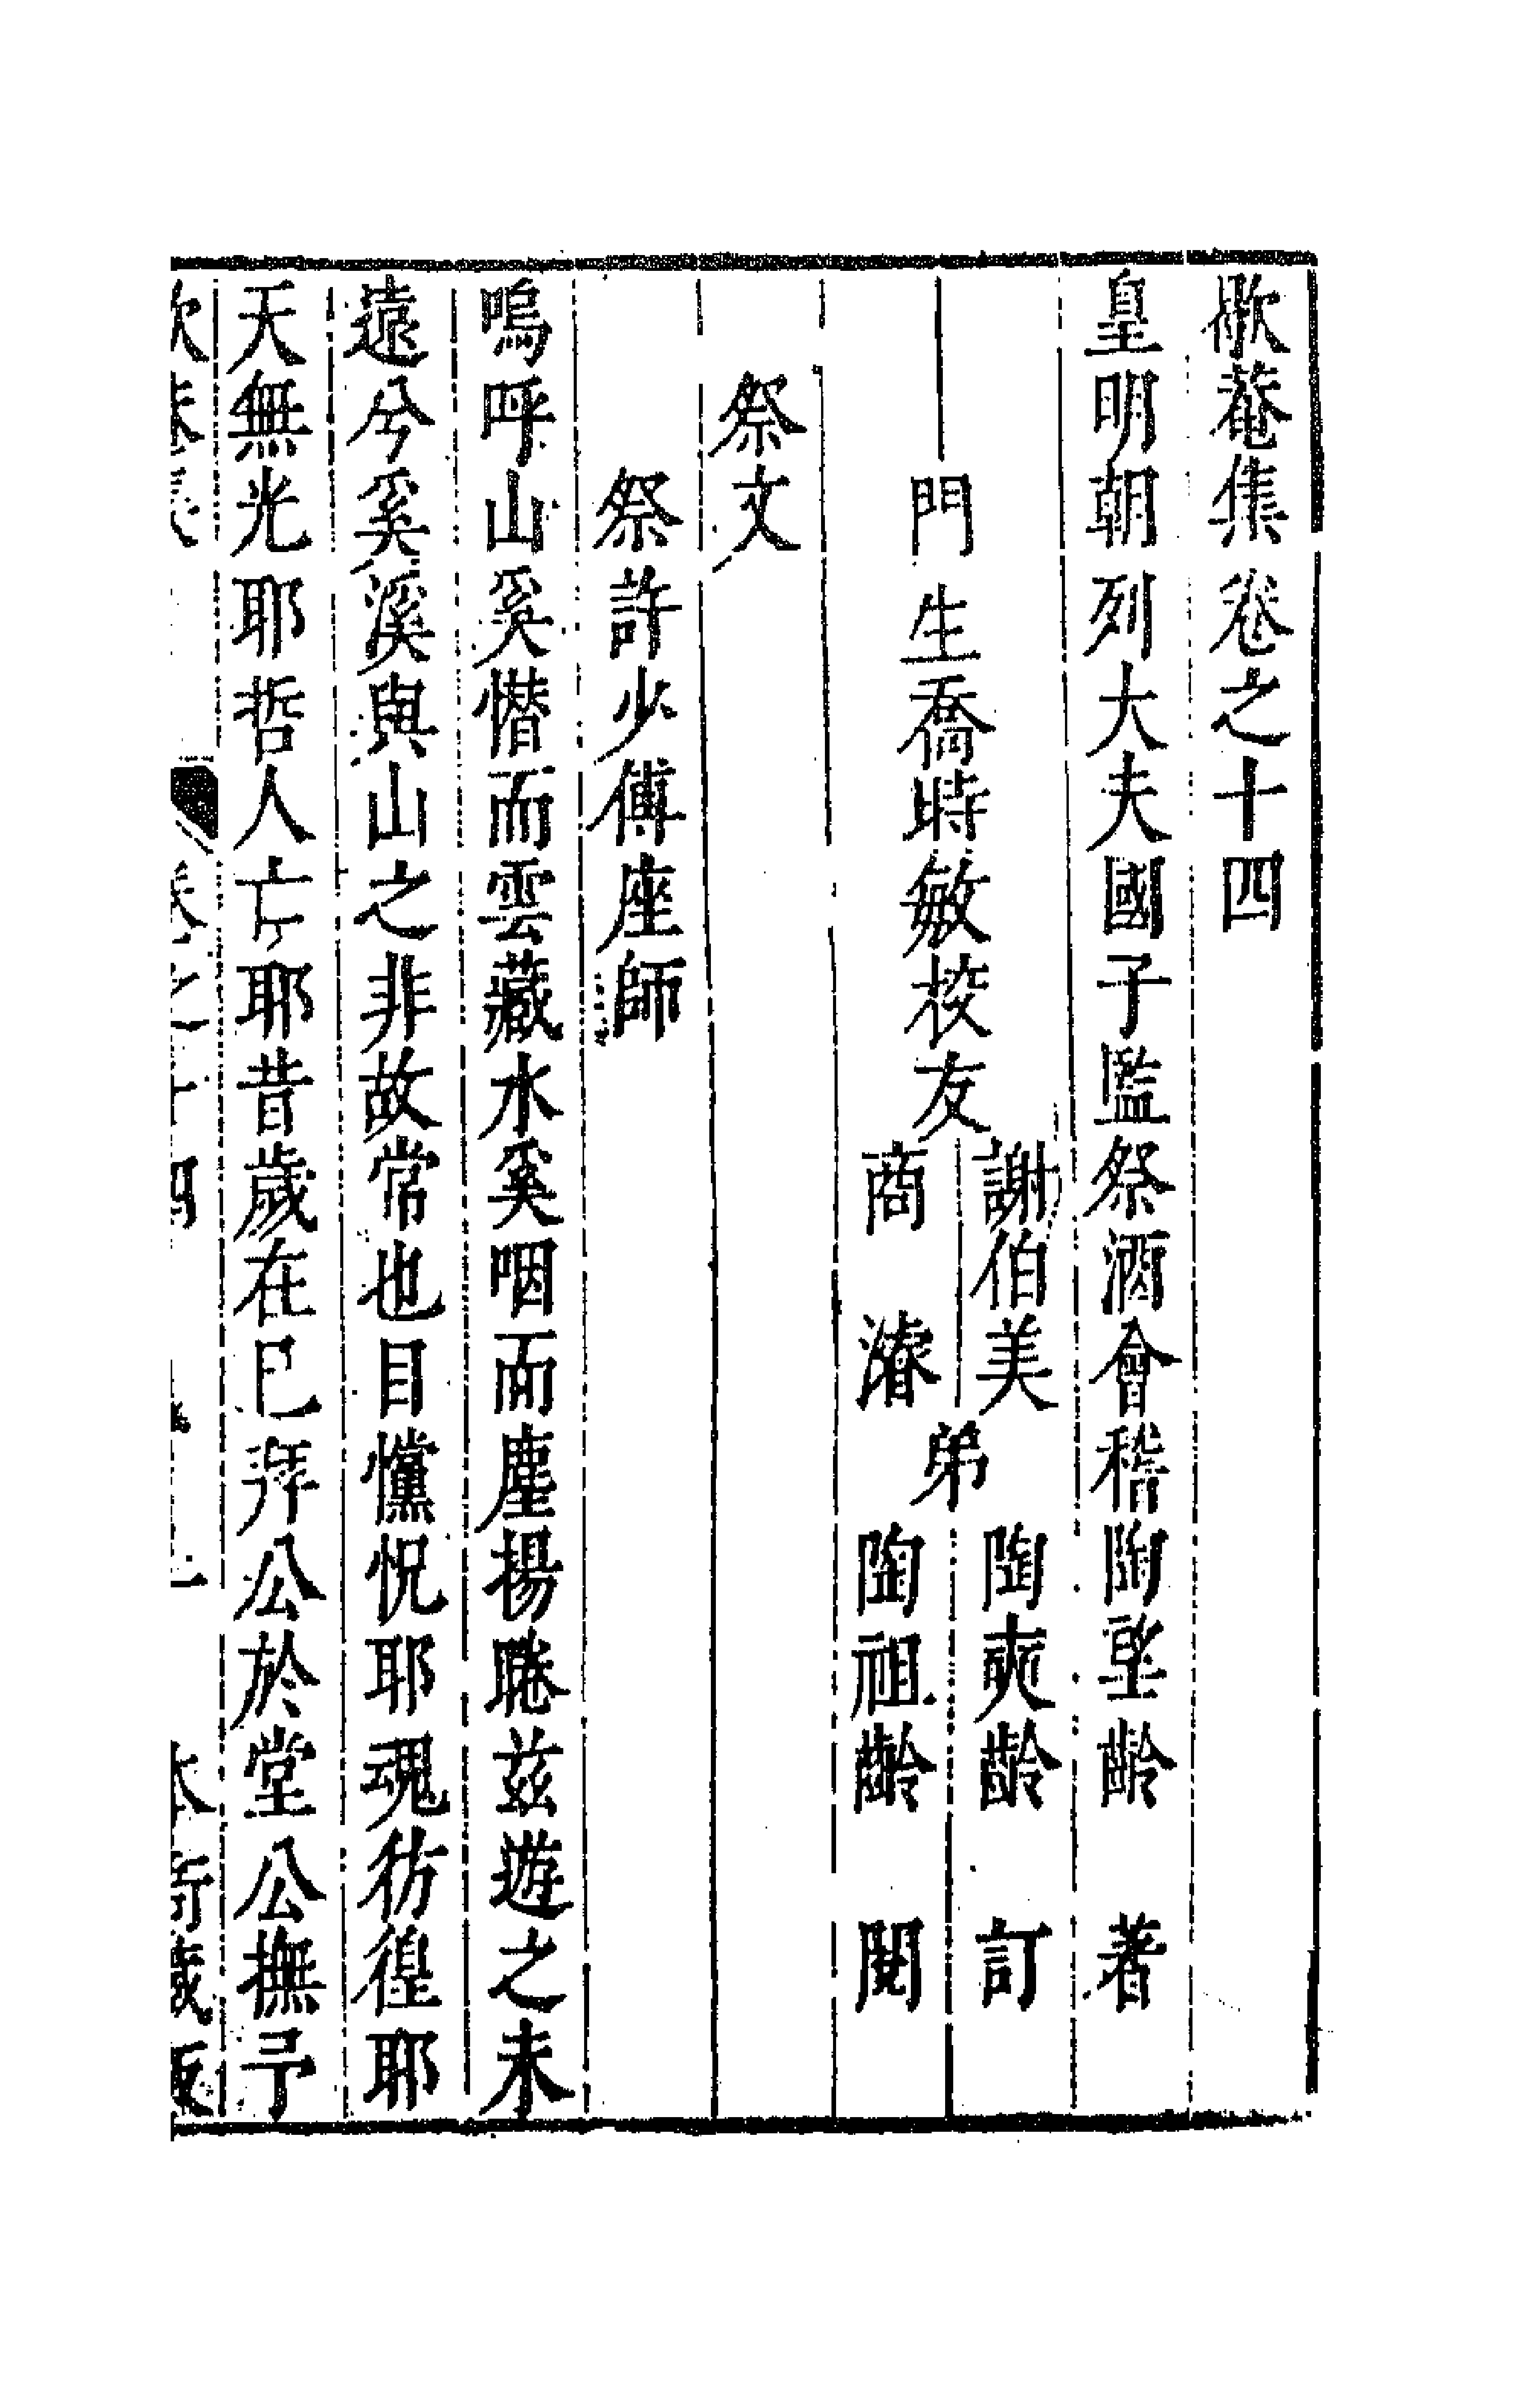 歇菴集卷之十四
皇明朝列大夫國子監祭酒會稽陶望齡　著
門生喬時敏校友
謝伯美
商　濬
弟
陶奭齡　訂
陶祖齡　閱
祭文
祭許少傅座師
嗚呼山奚憯而雲藏水奚咽而塵揚睠茲遊之未
遠兮奚溪與山之非故常也目戃怳耶魂彷徨耶
天無光耶哲人亡耶昔歲在巳拜公於堂公撫予